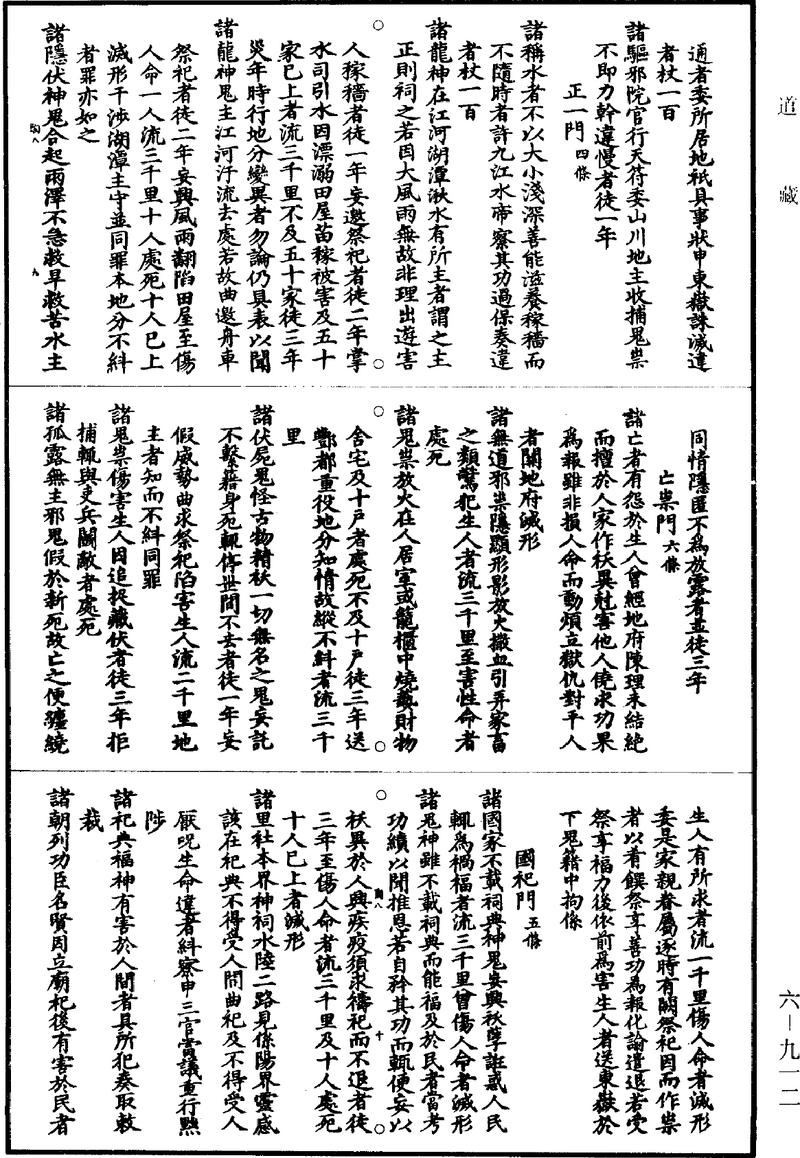 道藏
通者委所居地祇具事狀申東嶽誅滅違
者杖一百
諸驅邪院官行天符委山川地主收捕鬼祟
不即力幹違慢者徒一年
正一門四條
諸稱水者不以大小淺深善能滋養稼穡而
不隨時者許九江水帝察其功過保奏違
者杖一百
諸龍神在江河湖潭湫水有所主者謂之主
正則祠之若因大風雨無故非理出遊害
人稼穡者徒一年妄邀祭祀者徒二年掌
水司引水因漂溺田屋苗稼被害及五十
家已上者流三千里不及五十家徒三年
災年時行地分變異者勿論仍具表以聞
諸龍神鬼主江河汙流去處若故曲邀舟車
祭祀者徒二年妄興風雨翻陷田屋至傷
人命一人流三千里十人處死十人已上
滅形干涉湖潭主守並同罪本地分不糾
者罪亦如之
諸隱伏神鬼合起雨澤不急救旱救苦水主
同情隱匿不為放露者並徒三年
亡祟門六條
諸亡者有怨於生人曾經地府陳理未結絕
而擅於人家作祅異尅害他人僥求功果
為報雖非損人命而動煩立獄仇對干人
者關地府滅形
諸無道邪祟隱顯形影放火撒血引弄家畜
之類驚犯生人者流三千里至害性命者
處死
諸鬼祟放火在人居室或籠櫃中燒爇財物
舍宅及十戶者處死不及十戶徒三年送
酆都重役地分知情故縱不糾者流三千
里
諸伏屍鬼怪古物精祅一切無名之鬼妄託
不繫藉身死輒停世間不去者徒一年妄
假威勢曲求祭祀陷害生人流二千里地
主者知而不糾同罪
諸鬼祟傷害生人因追捉藏伏者徒三年拒
捕輒與吏兵鬬敵者處死
諸孤露無主邪鬼假於新死故亡之便纏繞
生人有所求者流一千里傷人命者滅形
委是家親眷屬逐時有闕祭祀因而作祟
者以肴饌祭享善功為報化諭遣退若受
祭享福力後依前為害生人者送東嶽於
下鬼籍中拘係
國祀門五條
諸國家不載祠典神鬼妄興祅孽誑惑人民
輒為禍福者流三千里曾傷人命者滅形
諸鬼神雖不載祠典而能福及於民者當考
功績以聞推恩若自矜其功而輒便妄以
祅異於人興疾疫須求禱祀而不退者徒
三年至傷人命者流三千里及十人處死
十人已上者滅形
諸里社本界神祠水陸二路見係陽界靈感
該在祀典不得受人間曲祀及不得受人
厭呪生命違者糾察申三官當議重行黜
陟
諸祀典福神有害於人間者具所犯奏取敕
裁
諸朝列功臣名賢因立廟祀後有害於民者
六-九一二